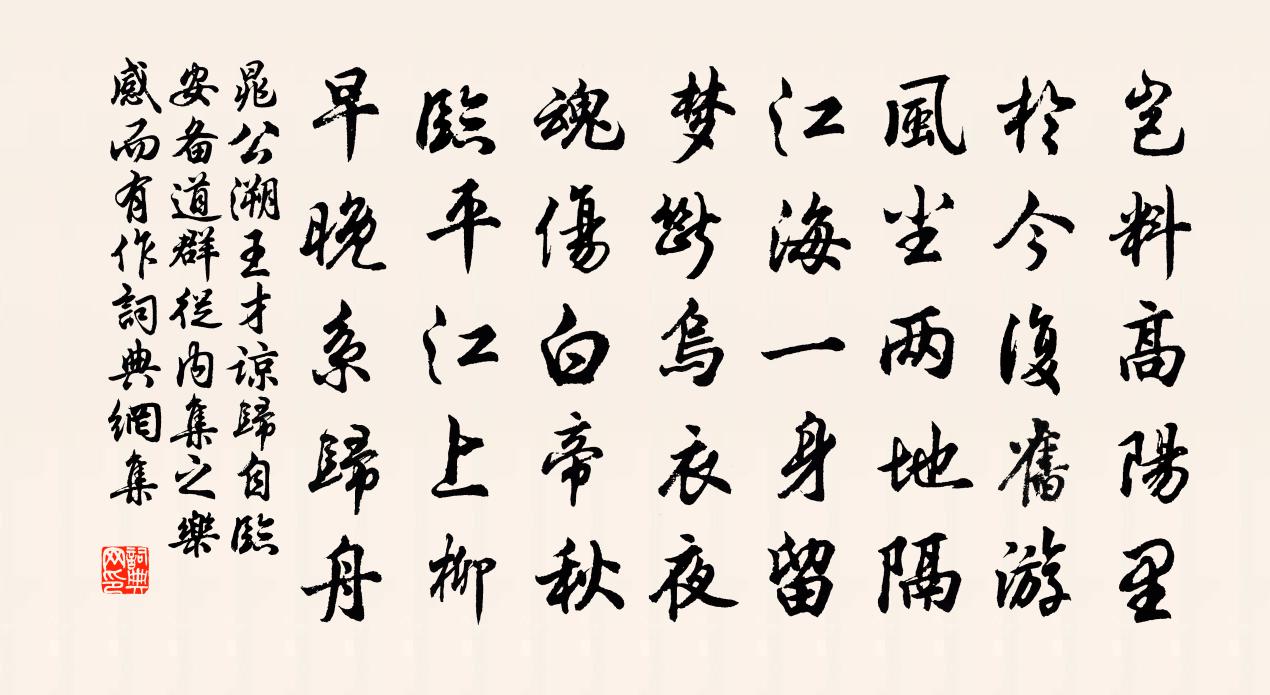 豈料高陽里
於今復舊游
風尘两地隔
江海一身留
梦斷烏衣夜
魂傷白帝秋
臨平江上柳
早晚系歸舟
晁公溯王才谅歸自臨
安备道群從内集之樂
感而有作詞典網集
詞典网印